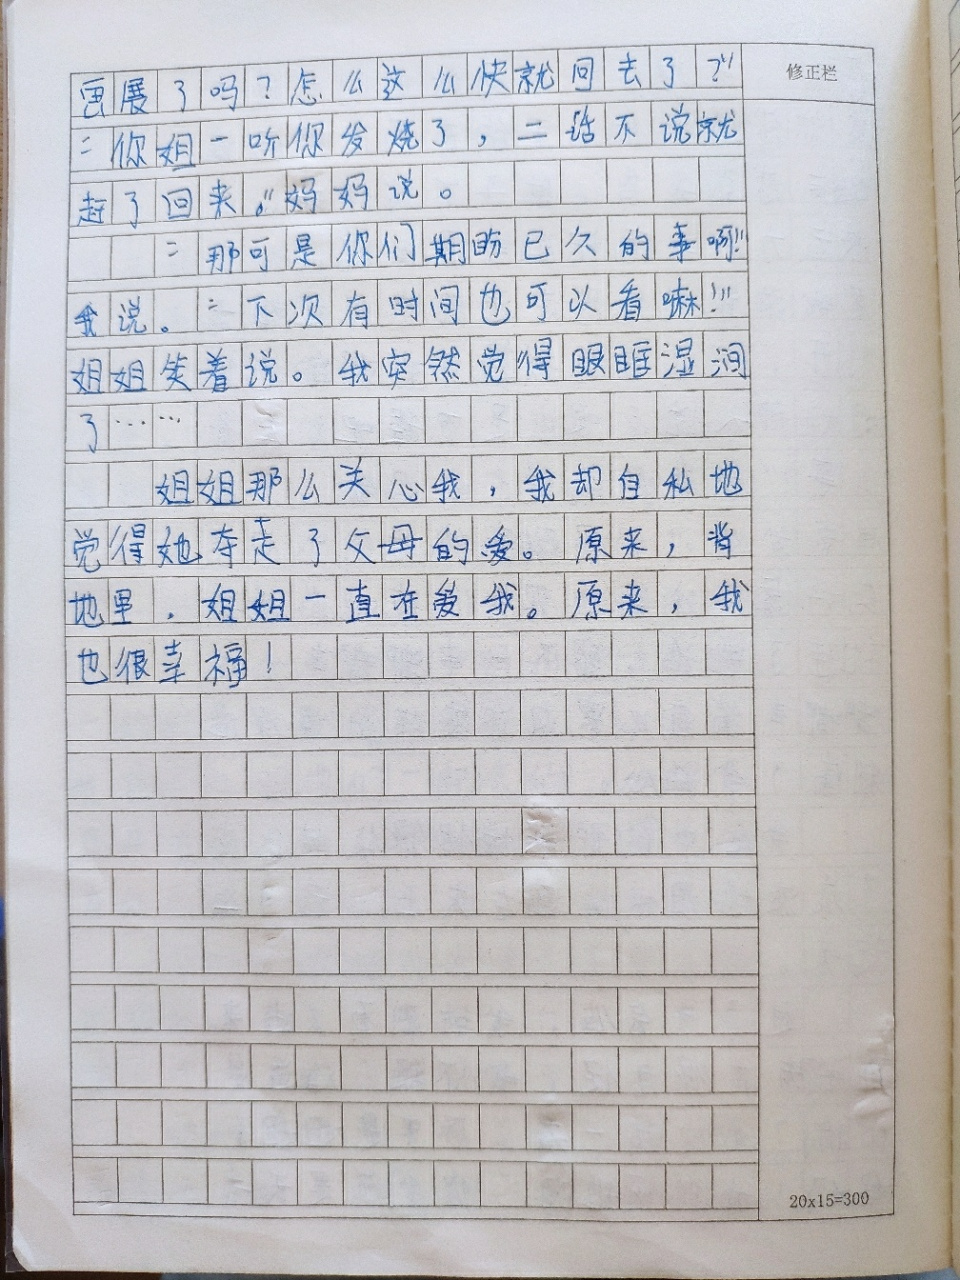 画展了吗？怎么这么快就回去了？”
修正栏
“你姐一听你发烧了，二话不说就
赶了回来。”妈妈说。
“那可是你们期盼已久的事啊！”
我说。“下次有时间也可以看嘛！”
姐姐笑着说。我突然觉得眼睛湿润
了……
姐姐那么关心我，我却自私地
觉得她夺走了父母的爱。原来，背
地里，姐姐一直在爱我。原来，我
也很幸福！
20x15=300